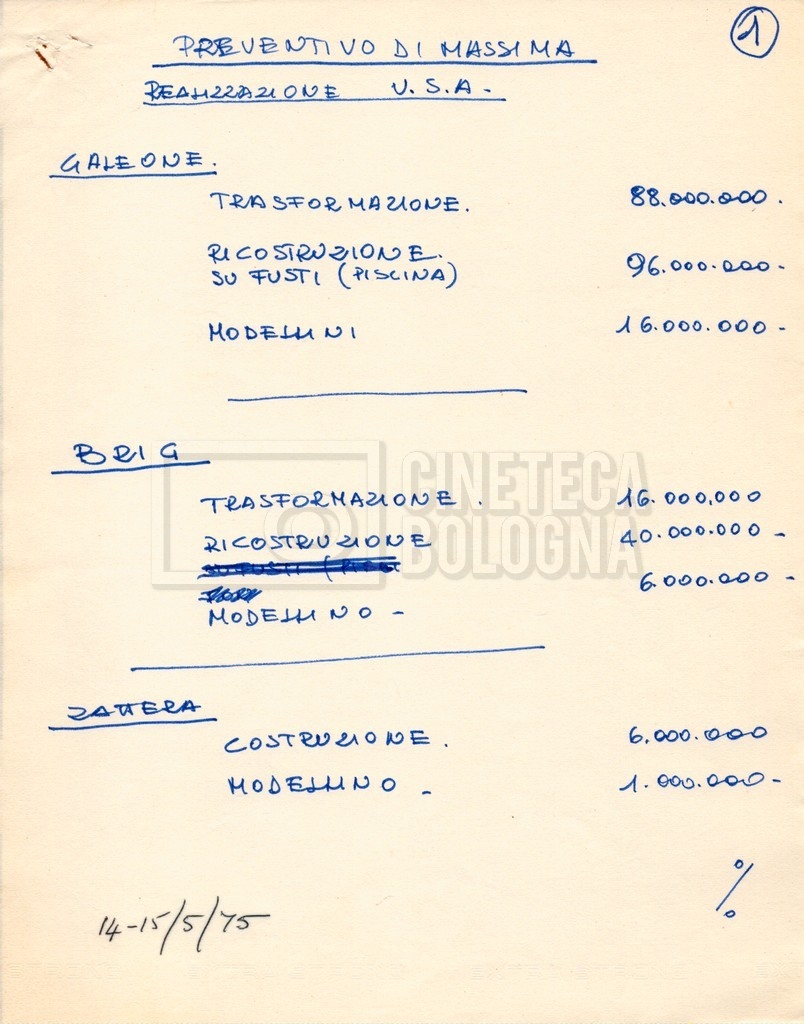 1
PREVENTIVO DI MASSIMA
REALIZZAZIONE U.S.A-
GALEONE.
TRASFORMAZIONE. 88.000.000.
RICOSTRUZIONE.
SU FUSTI (PISCINA) 96.000.000-
MODELLINI 16.000.000-
BRIG
TRASFORMAZIONE. 16.000.000
RICOSTRUZIONE 40.000.000-
SU FUSTI (
6.000.000-
MODELLINO-
ZATTERA
COSTRUZIONE. 6.000.000
MODELLINO- 1.000.000-
%
14-15/5/75
CINETECA
BOLOGNA